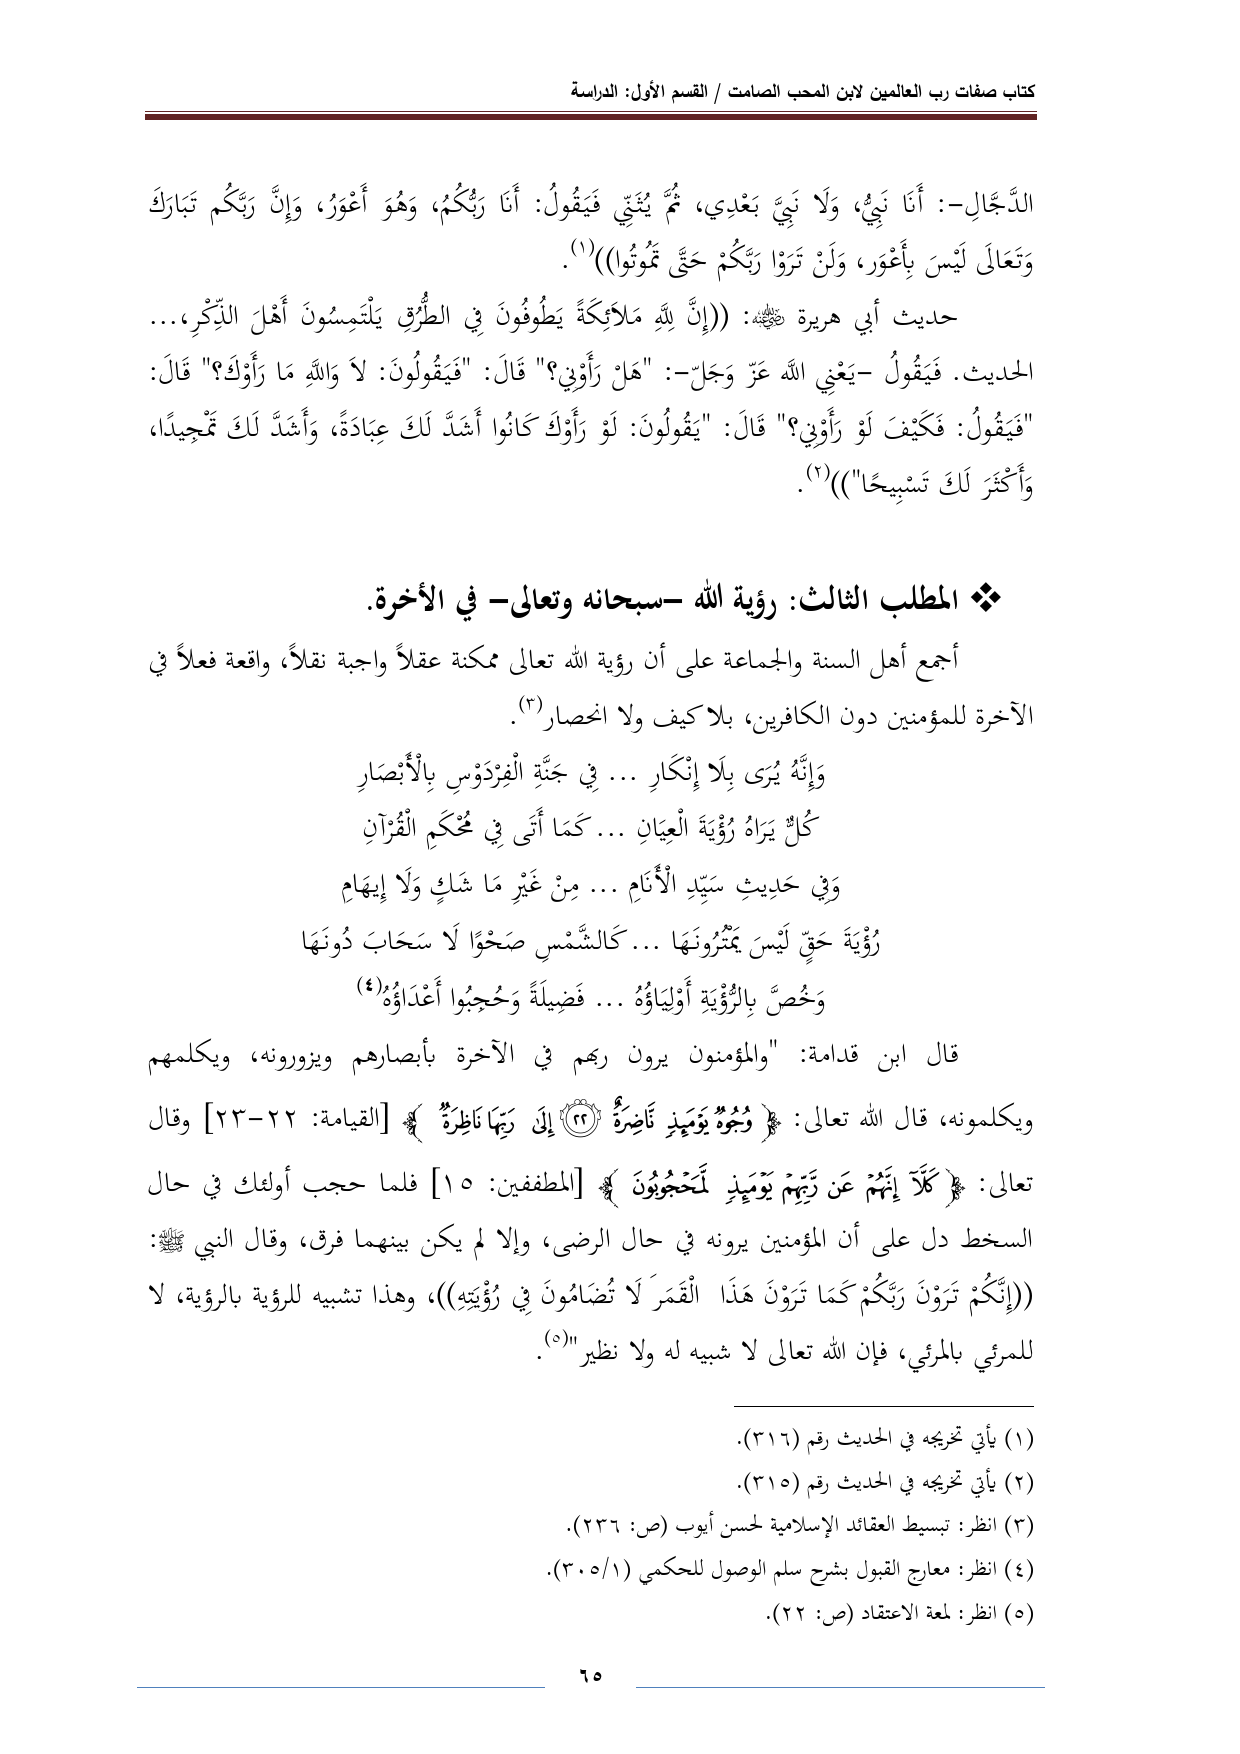 كتاب صفات رب العالمين لابن المحب الصامت / القسم الأول: الدراسة
الدَّجَّالِ-: أَنَا نَبِيٌّ، وَلَا نَبِيَّ بَعْدِي، ثُمَّ يُثَنِّي فَيَقُولُ: أَنَا رَبُّكُمُ، وَهُوَ أَعْوَرُ، وَإِنَّ رَبَّكُم تَبَارَكَ
وَتَعَالَى لَيْسَ بِأَعْوَر، وَلَنْ تَرَوْا رَبَّكُمْ حَتَّى تَمُوتُوا))(١).
حديث أبي هريرة ﵁: ((إِنَّ لِلَّهِ مَلاَئِكَةً يَطُوفُونَ فِي الطُّرُقِ يَلْتَمِسُونَ أَهْلَ الذِّكْرِ،...
الحديث. فَيَقُولُ -يَعْنِي الله عَزّ وَجَلّ-: "هَلْ رَأَوْنِي؟" قَالَ: "فَيَقُولُونَ: لاَ وَاللَّهِ مَا رَأَوْكَ؟" قَالَ:
"فَيَقُولُ: فَكَيْفَ لَوْ رَأَوْنِي؟" قَالَ: "يَقُولُونَ: لَوْ رَأَوْكَ كَانُوا أَشَدَّ لَكَ عِبَادَةً، وَأَشَدَّ لَكَ تَمْجِيدًا،
وَأَكْثَرَ لَكَ تَسْبِيحًا"))(٢).
❖ المطلب الثالث: رؤية الله -سبحانه وتعالى- في الأخرة.
أجمع أهل السنة والجماعة على أن رؤية الله تعالى ممكنة عقلاً واجبة نقلاً، واقعة فعلاً في
الآخرة للمؤمنين دون الكافرين، بلا كيف ولا انحصار(٣).
وَإِنَّهُ يُرَى بِلَا إِنْكَارِ ... فِي جَنَّةِ الْفِرْدَوْسِ بِالْأَبْصَارِ
كُلٌّ يَرَاهُ رُؤْيَةَ الْعِيَانِ ... كَمَا أَتَى فِي مُحْكَمِ الْقُرْآنِ
وَفِي حَدِيثِ سَيِّدِ الْأَنَامِ ... مِنْ غَيْرِ مَا شَكٍ وَلَا إِيهَامِ
رُؤْيَةَ حَقٍّ لَيْسَ يَمْتُرُونَهَا ... كَالشَّمْسِ صَحْوًا لَا سَحَابَ دُونَهَا
وَخُصَّ بِالرُّؤْيَةِ أَوْلِيَاؤُهُ ... فَضِيلَةً وَحُجِبُوا أَعْدَاؤُهُ(٤)
قال ابن قدامة: "والمؤمنون يرون ربهم في الآخرة بأبصارهم ويزورونه، ويكلمهم
ويكلمونه، قال الله تعالى: ﴿ وُجُوهٌ يَوْمَئِذٍ نَّاضِرَةٌ ٢٢ إِلَىٰ رَبِّهَا نَاظِرَةٌ ﴾ [القيامة: ٢٢-٢٣] وقال
تعالى: ﴿ كَلَّآ إِنَّهُمْ عَن رَّبِّهِمْ يَوْمَئِذٍ لَّمَحْجُوبُونَ ﴾ [المطففين: ١٥] فلما حجب أولئك في حال
السخط دل على أن المؤمنين يرونه في حال الرضى، وإلا لم يكن بينهما فرق، وقال النبي ﷺ:
((إِنَّكُمْ تَرَوْنَ رَبَّكُمْ كَمَا تَرَوْنَ هَذَا الْقَمَرَ لَا تُضَامُونَ فِي رُؤْيَتِهِ))، وهذا تشبيه للرؤية بالرؤية، لا
للمرئي بالمرئي، فإن الله تعالى لا شبيه له ولا نظير"(٥).
(١) يأتي تخريجه في الحديث رقم (٣١٦).
(٢) يأتي تخريجه في الحديث رقم (٣١٥).
(٣) انظر: تبسيط العقائد الإسلامية لحسن أيوب (ص: ٢٣٦).
(٤) انظر: معارج القبول بشرح سلم الوصول للحكمي (٣٠٥/١).
(٥) انظر: لمعة الاعتقاد (ص: ٢٢).
٦٥